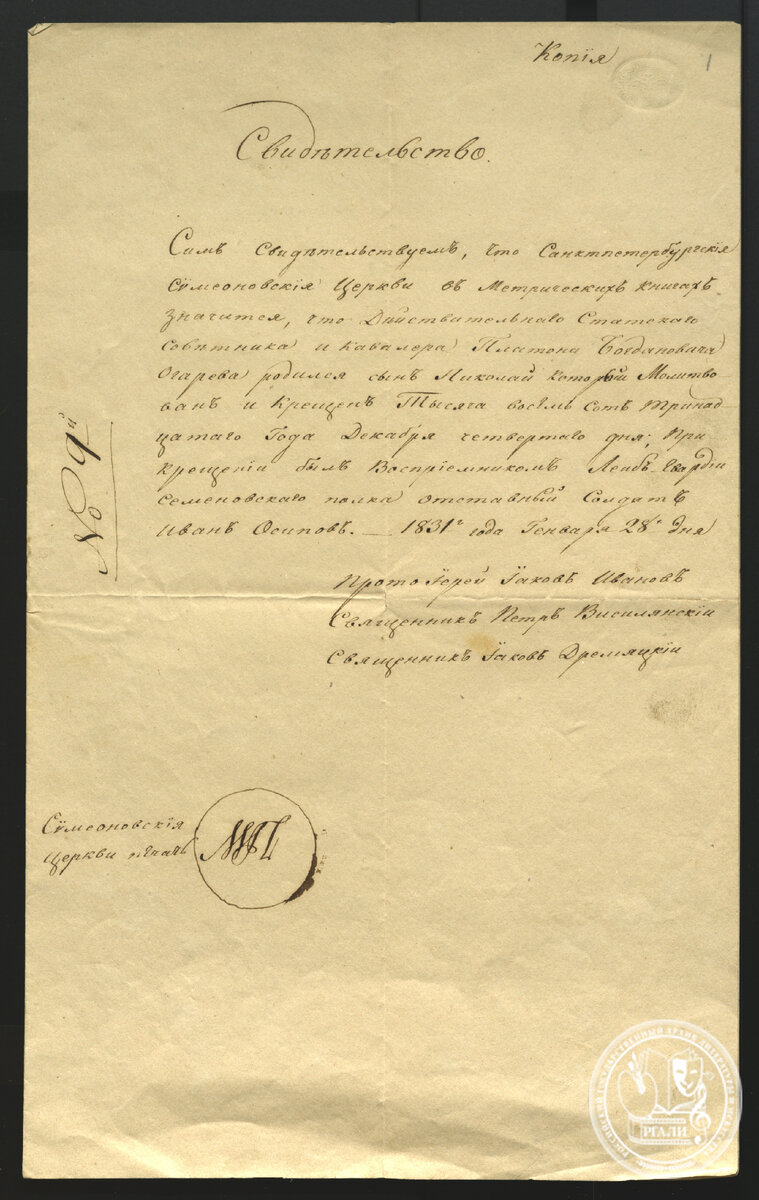 Копія
1
Свидѣтельство.
Симъ Свидѣтельствуемъ, что Санктпетербургскія
Сѵмеоновскія Церкви въ Метрическихъ книгахъ
значится, что Дѣйствительнаго Статскаго
Совѣтника и Кавалера Платона Богдановича
Огарева родился сынъ Николай который Молитво-
ванъ и Крещенъ Тысяча восемь сотъ тринад-
цатаго Года Декабря четвертаго дня; При
крещеніи былъ Воспріемникомъ Лейбъ-Гвардіи
семеновскаго полка отставный Солдатъ
Иванъ Осиповъ. — 1831г года Генваря 28г дня
Протоіерей Іаковъ Ивановъ
Священникъ Петръ
Священникъ Іаковъ
No 9й
Сѵмеоновскія
Церкви печать
МП
РОССИЙСКИЙ ГОСУДАРСТВЕННЫЙ АРХИВ ЛИТЕРАТУРЫ И ИСКУССТВА
РГАЛИ